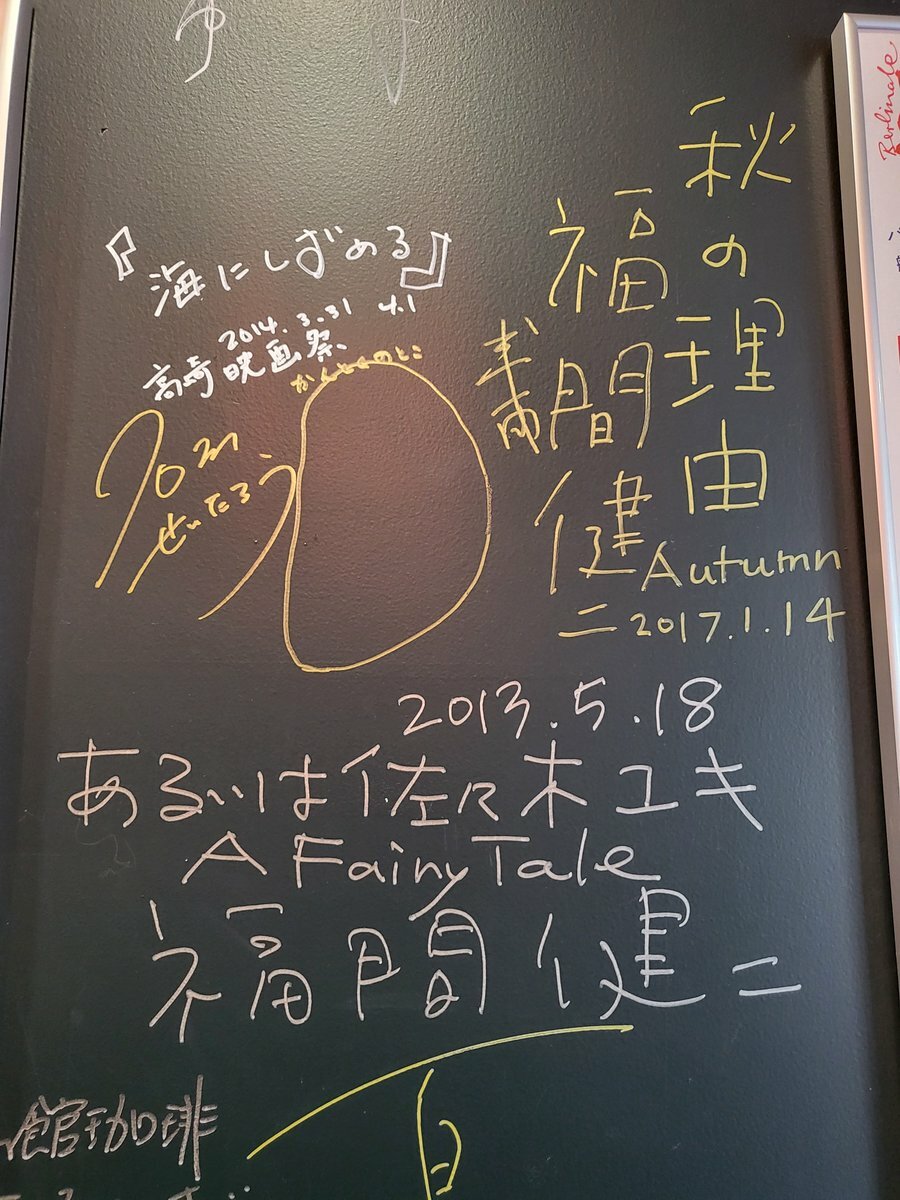 秋の理由
福間健二
Autumn
2017.1.14
『海にしずめる』
2014.3.31 4.1
高崎映画祭
かんとくのとこ
せいたろう
2013.5.18
あるいは佐々木ユキ
A Fairy Tale
福間健二
館珈琲
Berlinale